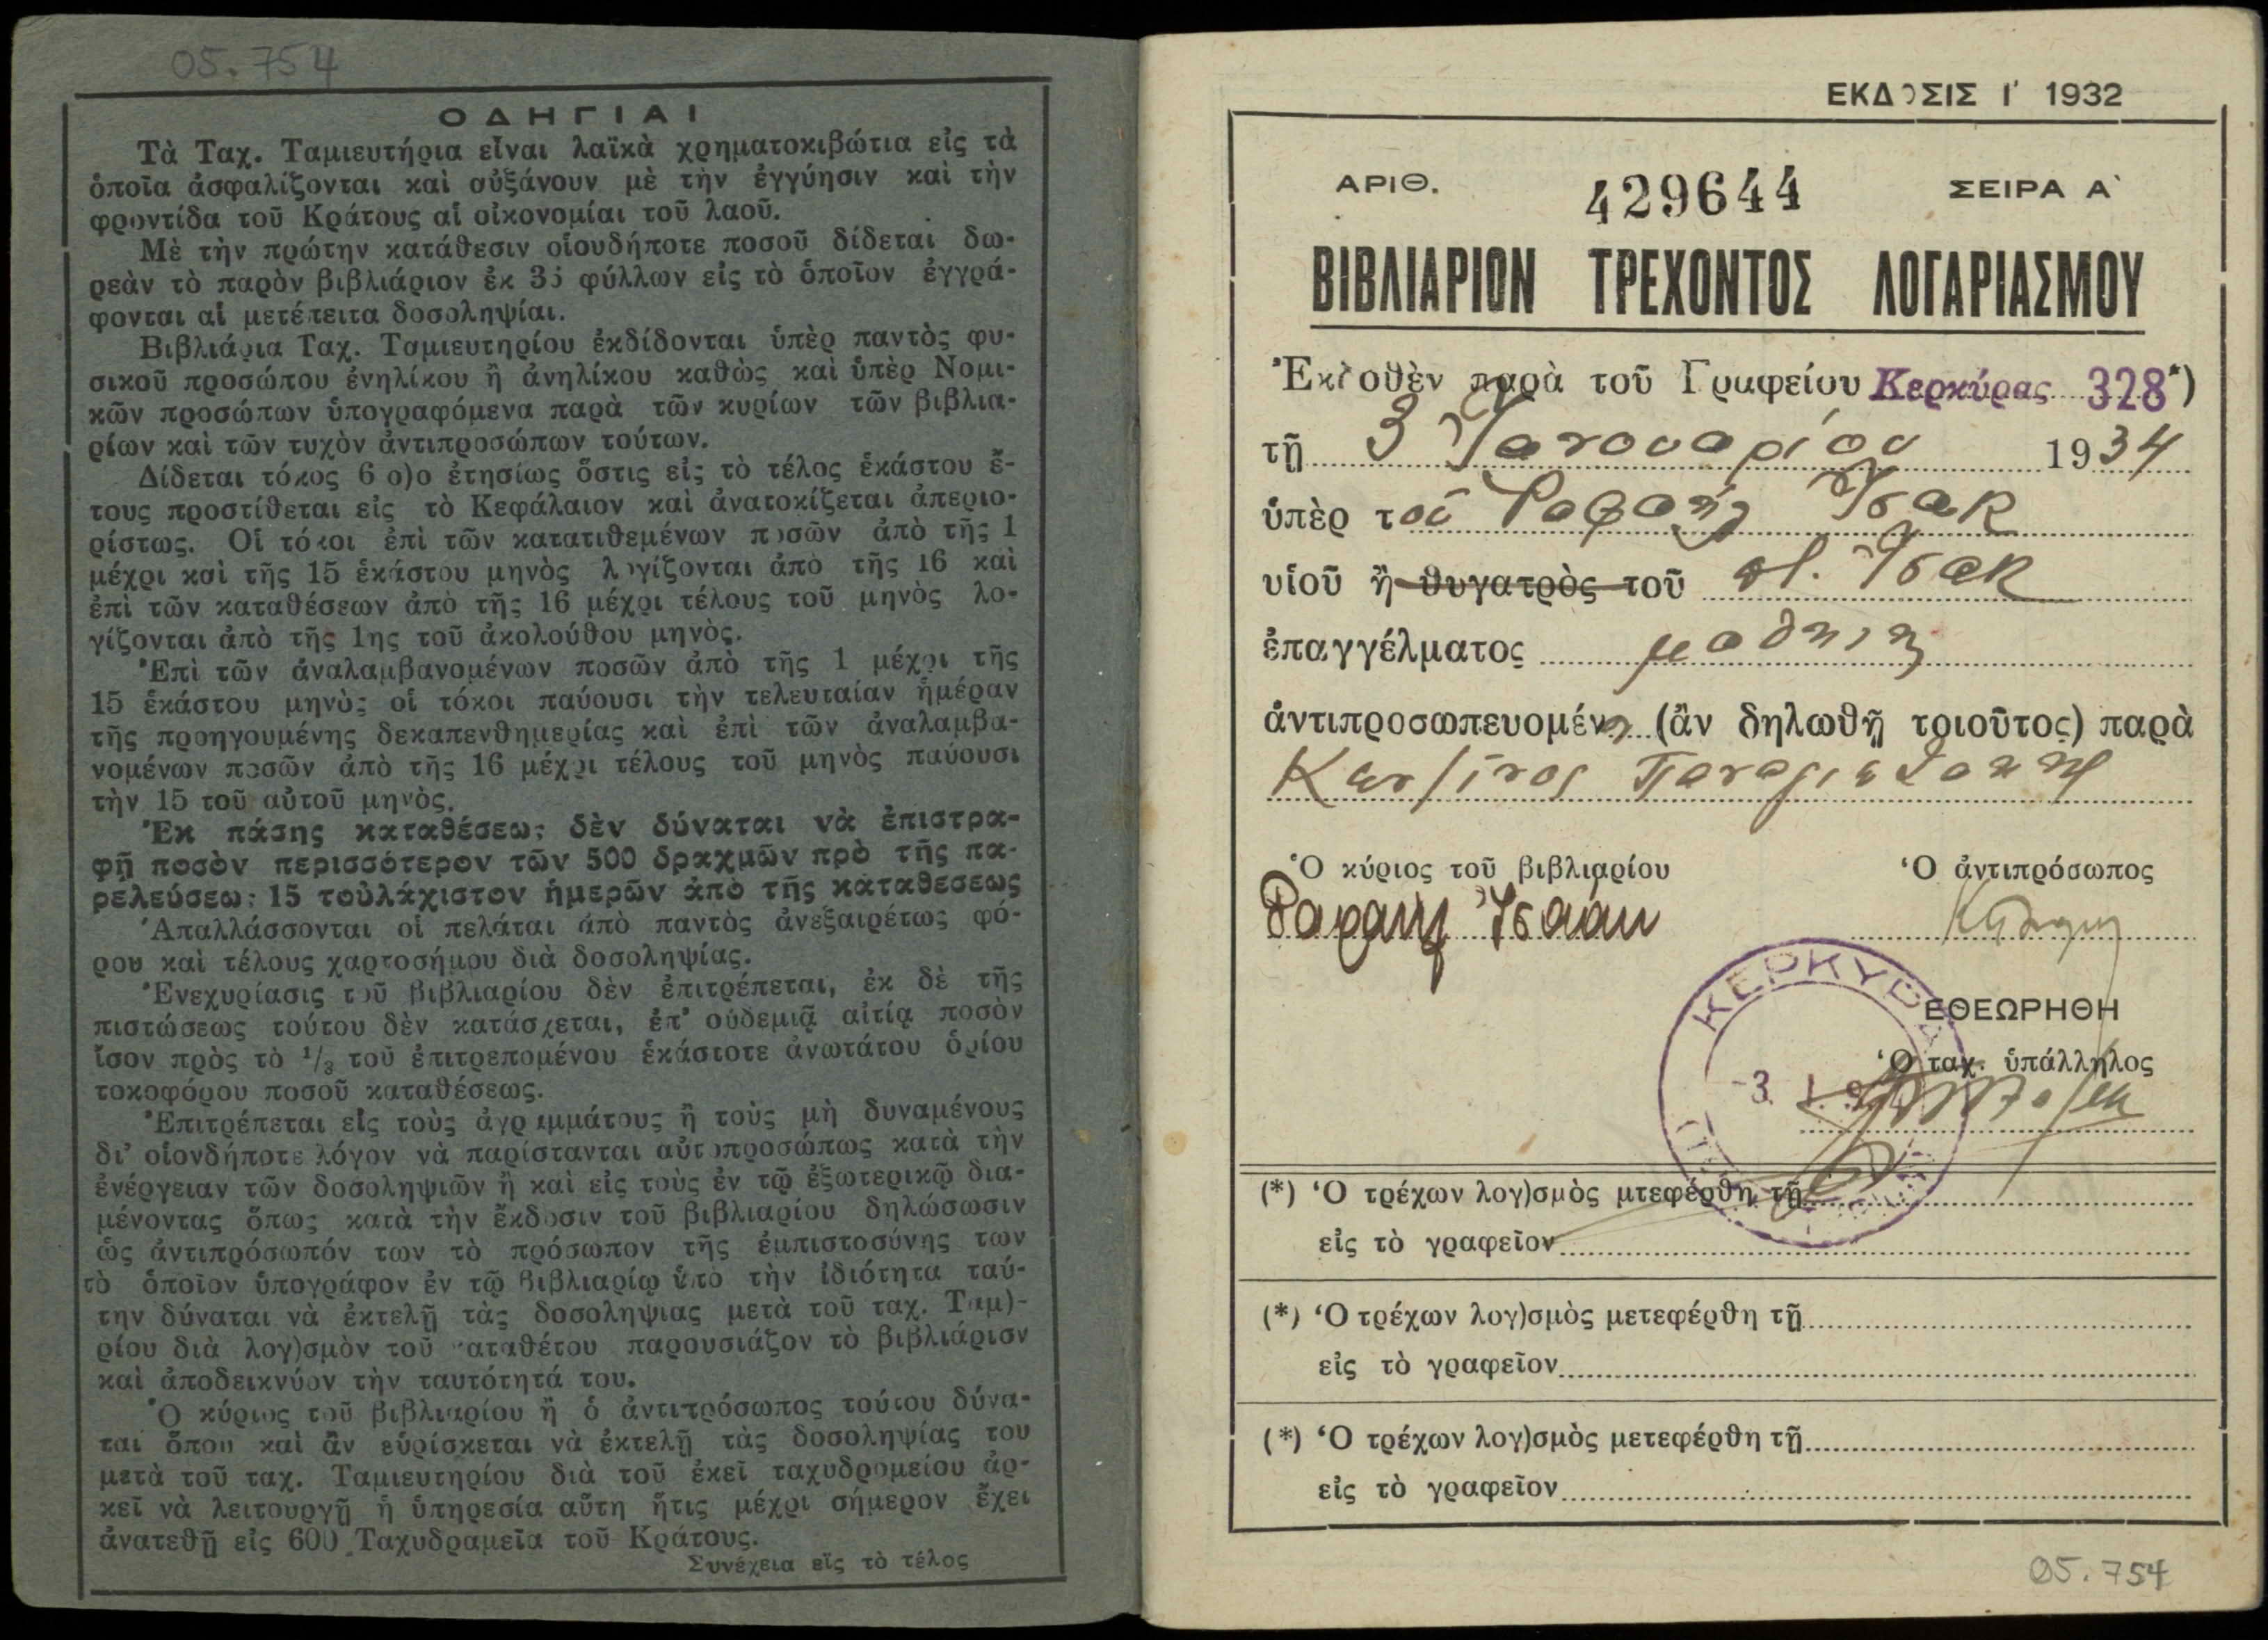 05.754
ΟΔΗΓΙΑΙ
Τὰ Ταχ. Ταμιευτήρια εἶναι λαϊκὰ χρηματοκιβώτια εἰς τὰ
ὁποῖα ἀσφαλίζονται καὶ αὐξάνουν μὲ τὴν ἐγγύησιν καὶ τὴν
φροντίδα τοῦ Κράτους αἱ οἰκονομίαι τοῦ λαοῦ.
Μὲ τὴν πρώτην κατάθεσιν οἱουδήποτε ποσοῦ δίδεται δω-
ρεὰν τὸ παρὸν βιβλιάριον ἐκ φύλλων εἰς τὸ ὁποῖον ἐγγρά-
φονται αἱ μετέπειτα δοσοληψίαι.
Βιβλιάρια Ταχ. Ταμιευτηρίου ἐκδίδονται ὑπὲρ παντὸς φυ-
σικοῦ προσώπου ἐνηλίκου ἢ ἀνηλίκου καθὼς καὶ ὑπὲρ Νομι-
κῶν προσώπων ὑπογραφόμενα παρὰ τῶν κυρίων τῶν βιβλια-
ρίων καὶ τῶν τυχὸν ἀντιπροσώπων τούτων.
Δίδεται τόκος 6 ο)ο ἐτησίως ὅστις εἰς τὸ τέλος ἑκάστου ἔ-
τους προστίθεται εἰς τὸ Κεφάλαιον καὶ ἀνατοκίζεται ἀπεριο-
ρίστως. Οἱ τόκοι ἐπὶ τῶν κατατιθεμένων ποσῶν ἀπὸ τῆς 1
μέχρι καὶ τῆς 15 ἑκάστου μηνὸς λογίζονται ἀπὸ τῆς 16 καὶ
ἐπὶ τῶν καταθέσεων ἀπὸ τῆς 16 μέχρι τέλους τοῦ μηνὸς λο-
γίζονται ἀπὸ τῆς 1ης τοῦ ἀκολούθου μηνὸς.
Ἐπὶ τῶν ἀναλαμβανομένων ποσῶν ἀπὸ τῆς 1 μέχρι τῆς
15 ἑκάστου μηνὸς οἱ τόκοι παύουσι τὴν τελευταίαν ἡμέραν
τῆς προηγουμένης δεκαπενθημερίας καὶ ἐπὶ τῶν ἀναλαμβα-
νομένων ποσῶν ἀπὸ τῆς 16 μέχρι τέλους τοῦ μηνὸς παύουσι
τὴν 15 τοῦ αὐτοῦ μηνὸς.
Ἐκ πάσης καταθέσεως δὲν δύναται νὰ ἐπιστρα-
φῇ ποσὸν περισσότερον τῶν 500 δραχμῶν πρὸ τῆς πα-
ρελεύσεως 15 τοὐλάχιστον ἡμερῶν ἀπὸ τῆς καταθεσεως
Ἀπαλλάσσονται οἱ πελάται ἀπὸ παντὸς ἀνεξαιρέτως φό-
ρου καὶ τέλους χαρτοσήμου διὰ δοσοληψίας.
Ἐνεχυρίασις τοῦ βιβλιαρίου δὲν ἐπιτρέπεται, ἐκ δὲ τῆς
πιστώσεως τούτου δὲν κατάσχεται, ἐπ' οὐδεμιᾷ αἰτίᾳ ποσὸν
ἴσον πρὸς τὸ 1/3 τοῦ ἐπιτρεπομένου ἑκάστοτε ἀνωτάτου ὁρίου
τοκοφόρου ποσοῦ καταθέσεως.
Ἐπιτρέπεται εἰς τοὺς ἀγραμμάτους ἢ τοὺς μὴ δυναμένους
δι' οἱονδήποτε λόγον νὰ παρίστανται αὐτοπροσώπως κατὰ τὴν
ἐνέργειαν τῶν δοσοληψιῶν ἢ καὶ εἰς τοὺς ἐν τῷ ἐξωτερικῷ δια-
μένοντας ὅπως κατὰ τὴν ἔκδοσιν τοῦ βιβλιαρίου δηλώσωσιν
ὡς ἀντιπρόσωπόν των τὸ πρόσωπον τῆς ἐμπιστοσύνης των
τὸ ὁποῖον ὑπογράφον ἐν τῷ βιβλιαρίῳ ὑπο τὴν ἰδιότητα ταύ-
την δύναται νὰ ἐκτελῇ τὰς δοσοληψιας μετὰ τοῦ ταχ. Ταμ)-
ρίου διὰ λογ)σμὸν τοῦ καταθέτου παρουσιάζον τὸ βιβλιάρισν
καὶ ἀποδεικνύον τὴν ταυτότητά του.
Ὁ κύριος τοῦ βιβλιαρίου ἢ ὁ ἀντιπρόσωπος τούτου δύνα-
ται ὅπου καὶ ἂν εὑρίσκεται νὰ ἐκτελῇ τὰς δοσοληψίας του
μετὰ τοῦ ταχ. Ταμιευτηρίου διὰ τοῦ ἐκεῖ ταχυδρομείου ἀρ-
κεῖ νὰ λειτουργῇ ἡ ὑπηρεσία αὕτη ἥτις μέχρι σήμερον ἔχει
ἀνατεθῇ εἰς 600 Ταχυδραμεῖα τοῦ Κράτους.
Συνέχεια εἰς τὸ τέλος
ΕΚΔΟΣΙΣ Ι' 1932
ΑΡΙΘ. 429644 ΣΕΙΡΑ Α'
ΒΙΒΛΙΑΡΙΟΝ ΤΡΕΧΟΝΤΟΣ ΛΟΓΑΡΙΑΣΜΟΥ
Ἐκδοθὲν παρὰ τοῦ Γραφείου Κερκύρας 328*)
τῇ 3 Ἰανουαρίου 1934
ὑπὲρ τοῦ Ραφαὴλ Ἰσακ
υἱοῦ ἢ θυγατρὸς τοῦ Ἰσακ
ἐπαγγέλματος μαθητὴς
ἀντιπροσωπευομέν (ἂν δηλωθῇ τοιοῦτος) παρὰ
Ὁ κύριος τοῦ βιβλιαρίου Ὁ ἀντιπρόσωπος
Ραφαὴλ Ἰσαάκ
ΚΕΡΚΥΡΑ
ΕΘΕΩΡΗΘΗ
Ὁ ταχ. ὑπάλληλος
-3. 1.
(*) Ὁ τρέχων λογ)σμὸς μτεφέρθη τῇ
εἰς τὸ γραφεῖον
(*) Ὁ τρέχων λογ)σμὸς μετεφέρθη τῇ
εἰς τὸ γραφεῖον
(*) Ὁ τρέχων λογ)σμὸς μετεφέρθη τῇ
εἰς τὸ γραφεῖον
05.754